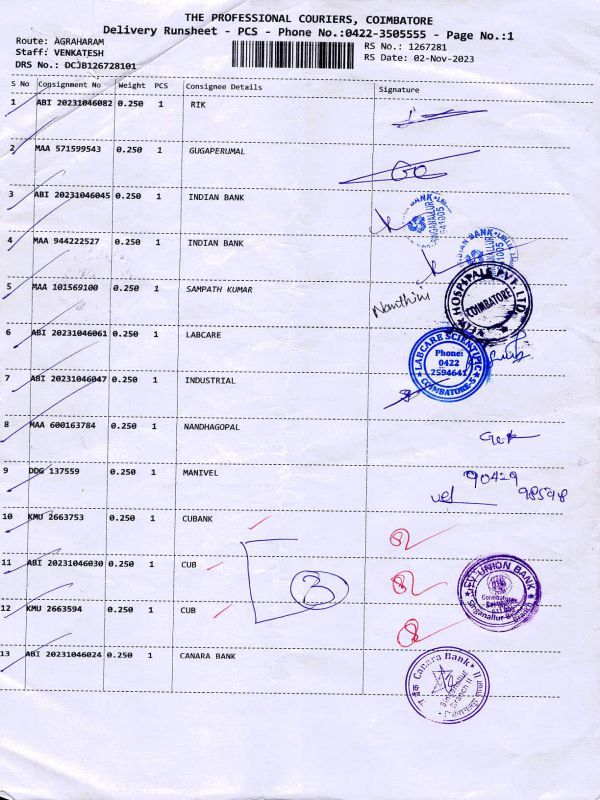 THE PROFESSIONAL COURIERS, COIMBATORE
Delivery Runsheet - PCS - Phone No.:0422-3505555 - Page No.:1
Route: AGRAHARAM
RS No.: 1267281
Staff: VENKATESH
RS Date: 02-Nov-2023
DRS No.: DCJB126728101
S No Consignment No Weight PCS Consignee Details Signature
1 ABI 20231046082 0.250 1 RIK
2 MAA 571599543 0.250 1 GUGAPERUMAL
3 ABI 20231046045 0.250 1 INDIAN BANK
4 MAA 944222527 0.250 1 INDIAN BANK
5 MAA 101569100 0.250 1 SAMPATH KUMAR Nanthini
HOSPITALS PVT. LTD
COIMBATORE
6 ABI 20231046061 0.250 1 LABCARE
LABCARE SCIENTIFIC
Phone:
0422
2594641
COIMBATORE-5
7 ABI 20231046047 0.250 1 INDUSTRIAL
8 MAA 600163784 0.250 1 NANDHAGOPAL
9 DDG 137559 0.250 1 MANIVEL
90429
98598
10 KMU 2663753 0.250 1 CUBANK
11 ABI 20231046030 0.250 1 CUB
3
UNION BANK
Coimbatore
Singanallur
12 KMU 2663594 0.250 1 CUB
13 ABI 20231046024 0.250 1 CANARA BANK
Canara Bank
Singanallur
Branch II